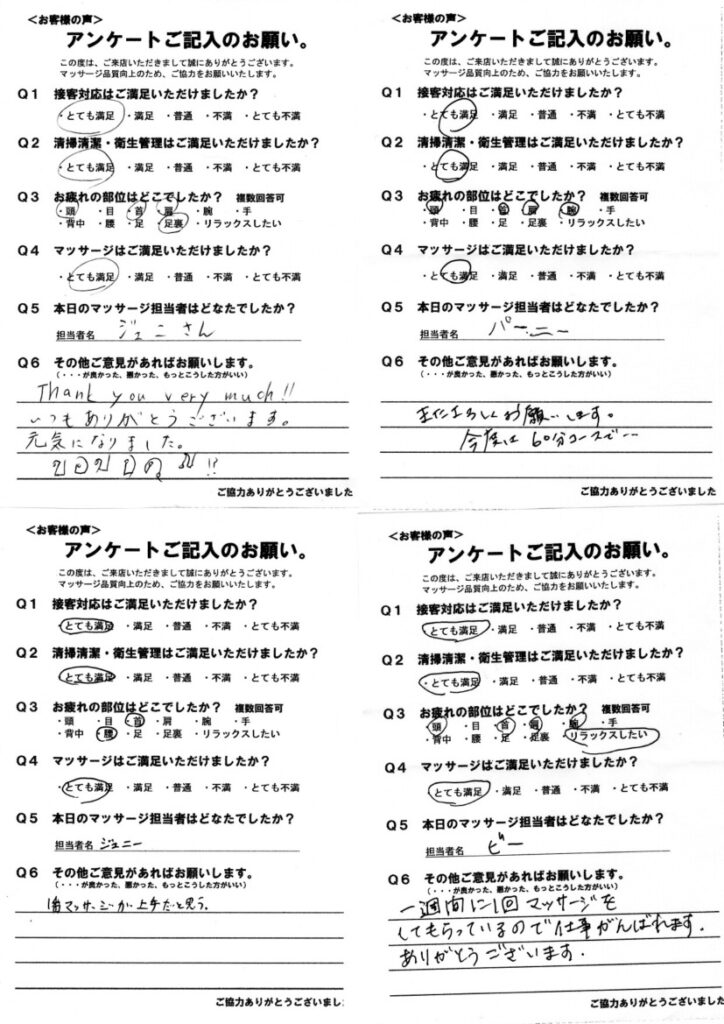 ＜お客様の声＞
アンケートご記入のお願い。
この度は、ご来店いただきまして誠にありがとうございます。
マッサージ品質向上のため、ご協力をお願いいたします。
Q1 接客対応はご満足いただけましたか？
・とても満足 ・満足 ・普通 ・不満 ・とても不満
Q2 清掃清潔・衛生管理はご満足いただけましたか？
・とても満足 ・満足 ・普通 ・不満 ・とても不満
Q3 お疲れの部位はどこでしたか？ 複数回答可
・頭 ・目 ・首 ・肩 ・腕 ・手
・背中 ・腰 ・足 ・足裏 ・リラックスしたい
Q4 マッサージはご満足いただけましたか？
・とても満足 ・満足 ・普通 ・不満 ・とても不満
Q5 本日のマッサージ担当者はどなたでしたか？
担当者名 ジェニさん
Q6 その他ご意見があればお願いします。
（・・・が良かった、悪かった、もっとこうした方がいい）
Thank you very much!!
いつもありがとうございます。
元気になりました。
ご協力ありがとうございました
＜お客様の声＞
アンケートご記入のお願い。
この度は、ご来店いただきまして誠にありがとうございます。
マッサージ品質向上のため、ご協力をお願いいたします。
Q1 接客対応はご満足いただけましたか？
・とても満足 ・満足 ・普通 ・不満 ・とても不満
Q2 清掃清潔・衛生管理はご満足いただけましたか？
・とても満足 ・満足 ・普通 ・不満 ・とても不満
Q3 お疲れの部位はどこでしたか？ 複数回答可
・頭 ・目 ・首 ・肩 ・腕 ・手
・背中 ・腰 ・足 ・足裏 ・リラックスしたい
Q4 マッサージはご満足いただけましたか？
・とても満足 ・満足 ・普通 ・不満 ・とても不満
Q5 本日のマッサージ担当者はどなたでしたか？
担当者名 パーニー
Q6 その他ご意見があればお願いします。
（・・・が良かった、悪かった、もっとこうした方がいい）
またよろしくお願いします。
今度は60分コースで…
ご協力ありがとうございました
＜お客様の声＞
アンケートご記入のお願い。
この度は、ご来店いただきまして誠にありがとうございます。
マッサージ品質向上のため、ご協力をお願いいたします。
Q1 接客対応はご満足いただけましたか？
・とても満足 ・満足 ・普通 ・不満 ・とても不満
Q2 清掃清潔・衛生管理はご満足いただけましたか？
・とても満足 ・満足 ・普通 ・不満 ・とても不満
Q3 お疲れの部位はどこでしたか？ 複数回答可
・頭 ・目 ・首 ・肩 ・腕 ・手
・背中 ・腰 ・足 ・足裏 ・リラックスしたい
Q4 マッサージはご満足いただけましたか？
・とても満足 ・満足 ・普通 ・不満 ・とても不満
Q5 本日のマッサージ担当者はどなたでしたか？
担当者名 ジェニー
Q6 その他ご意見があればお願いします。
（・・・が良かった、悪かった、もっとこうした方がいい）
マッサージが上手だと思う。
ご協力ありがとうございまし
＜お客様の声＞
アンケートご記入のお願い。
この度は、ご来店いただきまして誠にありがとうございます。
マッサージ品質向上のため、ご協力をお願いいたします。
Q1 接客対応はご満足いただけましたか？
・とても満足 ・満足 ・普通 ・不満 ・とても不満
Q2 清掃清潔・衛生管理はご満足いただけましたか？
・とても満足 ・満足 ・普通 ・不満 ・とても不満
Q3 お疲れの部位はどこでしたか？ 複数回答可
・頭 ・目 ・首 ・肩 ・腕 ・手
・背中 ・腰 ・足 ・足裏 ・リラックスしたい
Q4 マッサージはご満足いただけましたか？
・とても満足 ・満足 ・普通 ・不満 ・とても不満
Q5 本日のマッサージ担当者はどなたでしたか？
担当者名 ビー
Q6 その他ご意見があればお願いします。
（・・・が良かった、悪かった、もっとこうした方がいい）
一週間に1回マッサージを
してもらっているので仕事がんばれます.
ありがとうございます.
ご協力ありがとうございました